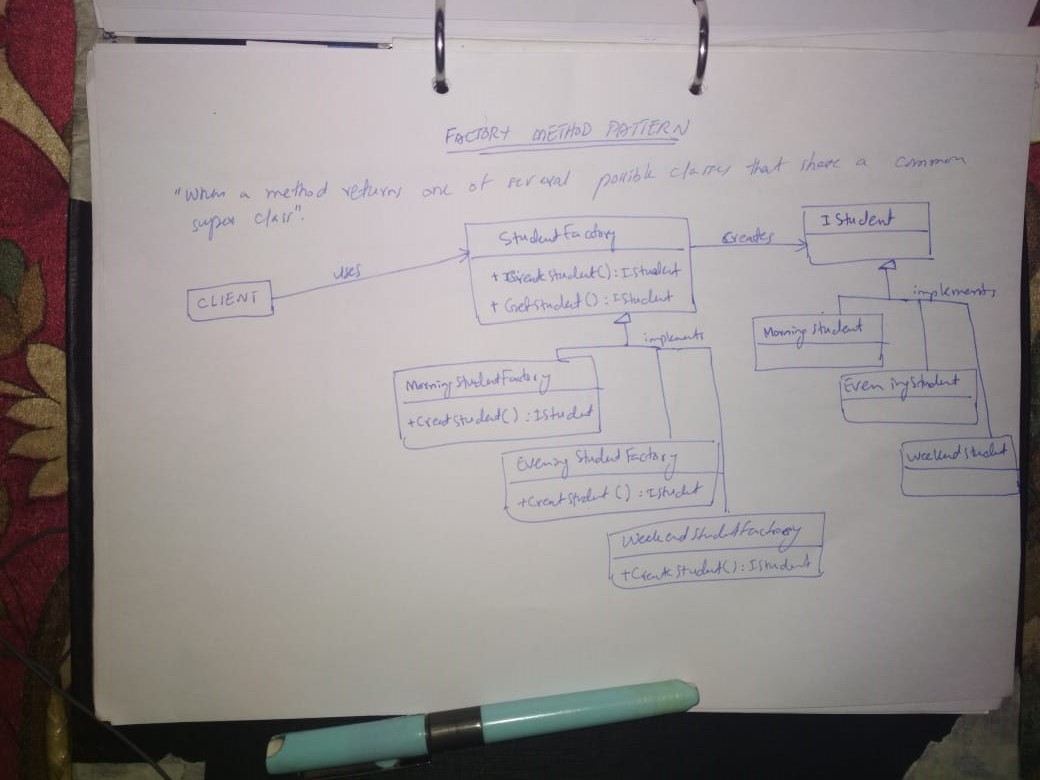 FACTORY METHOD PATTERN
"When a method returns one of several possible classes that share a common
super class".
IStudent
StudentFactory
creates
uses
+ Create student() : IStudent
+ GetStudent() : IStudent
CLIENT
implements
implements
Morning student
MorningStudentFactory
+CreatStudent() : IStudent
EveningStudent
Evening StudentFactory
+CreatStudent () : IStudent
WeekendStudent
WeekendStudentFactory
+CreateStudent() : IStudent